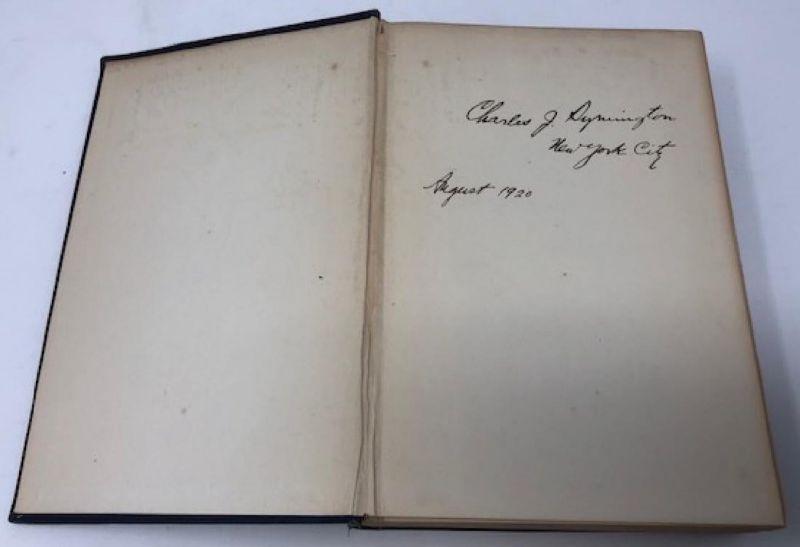 Charles J. Dymington
New York City
August 1920